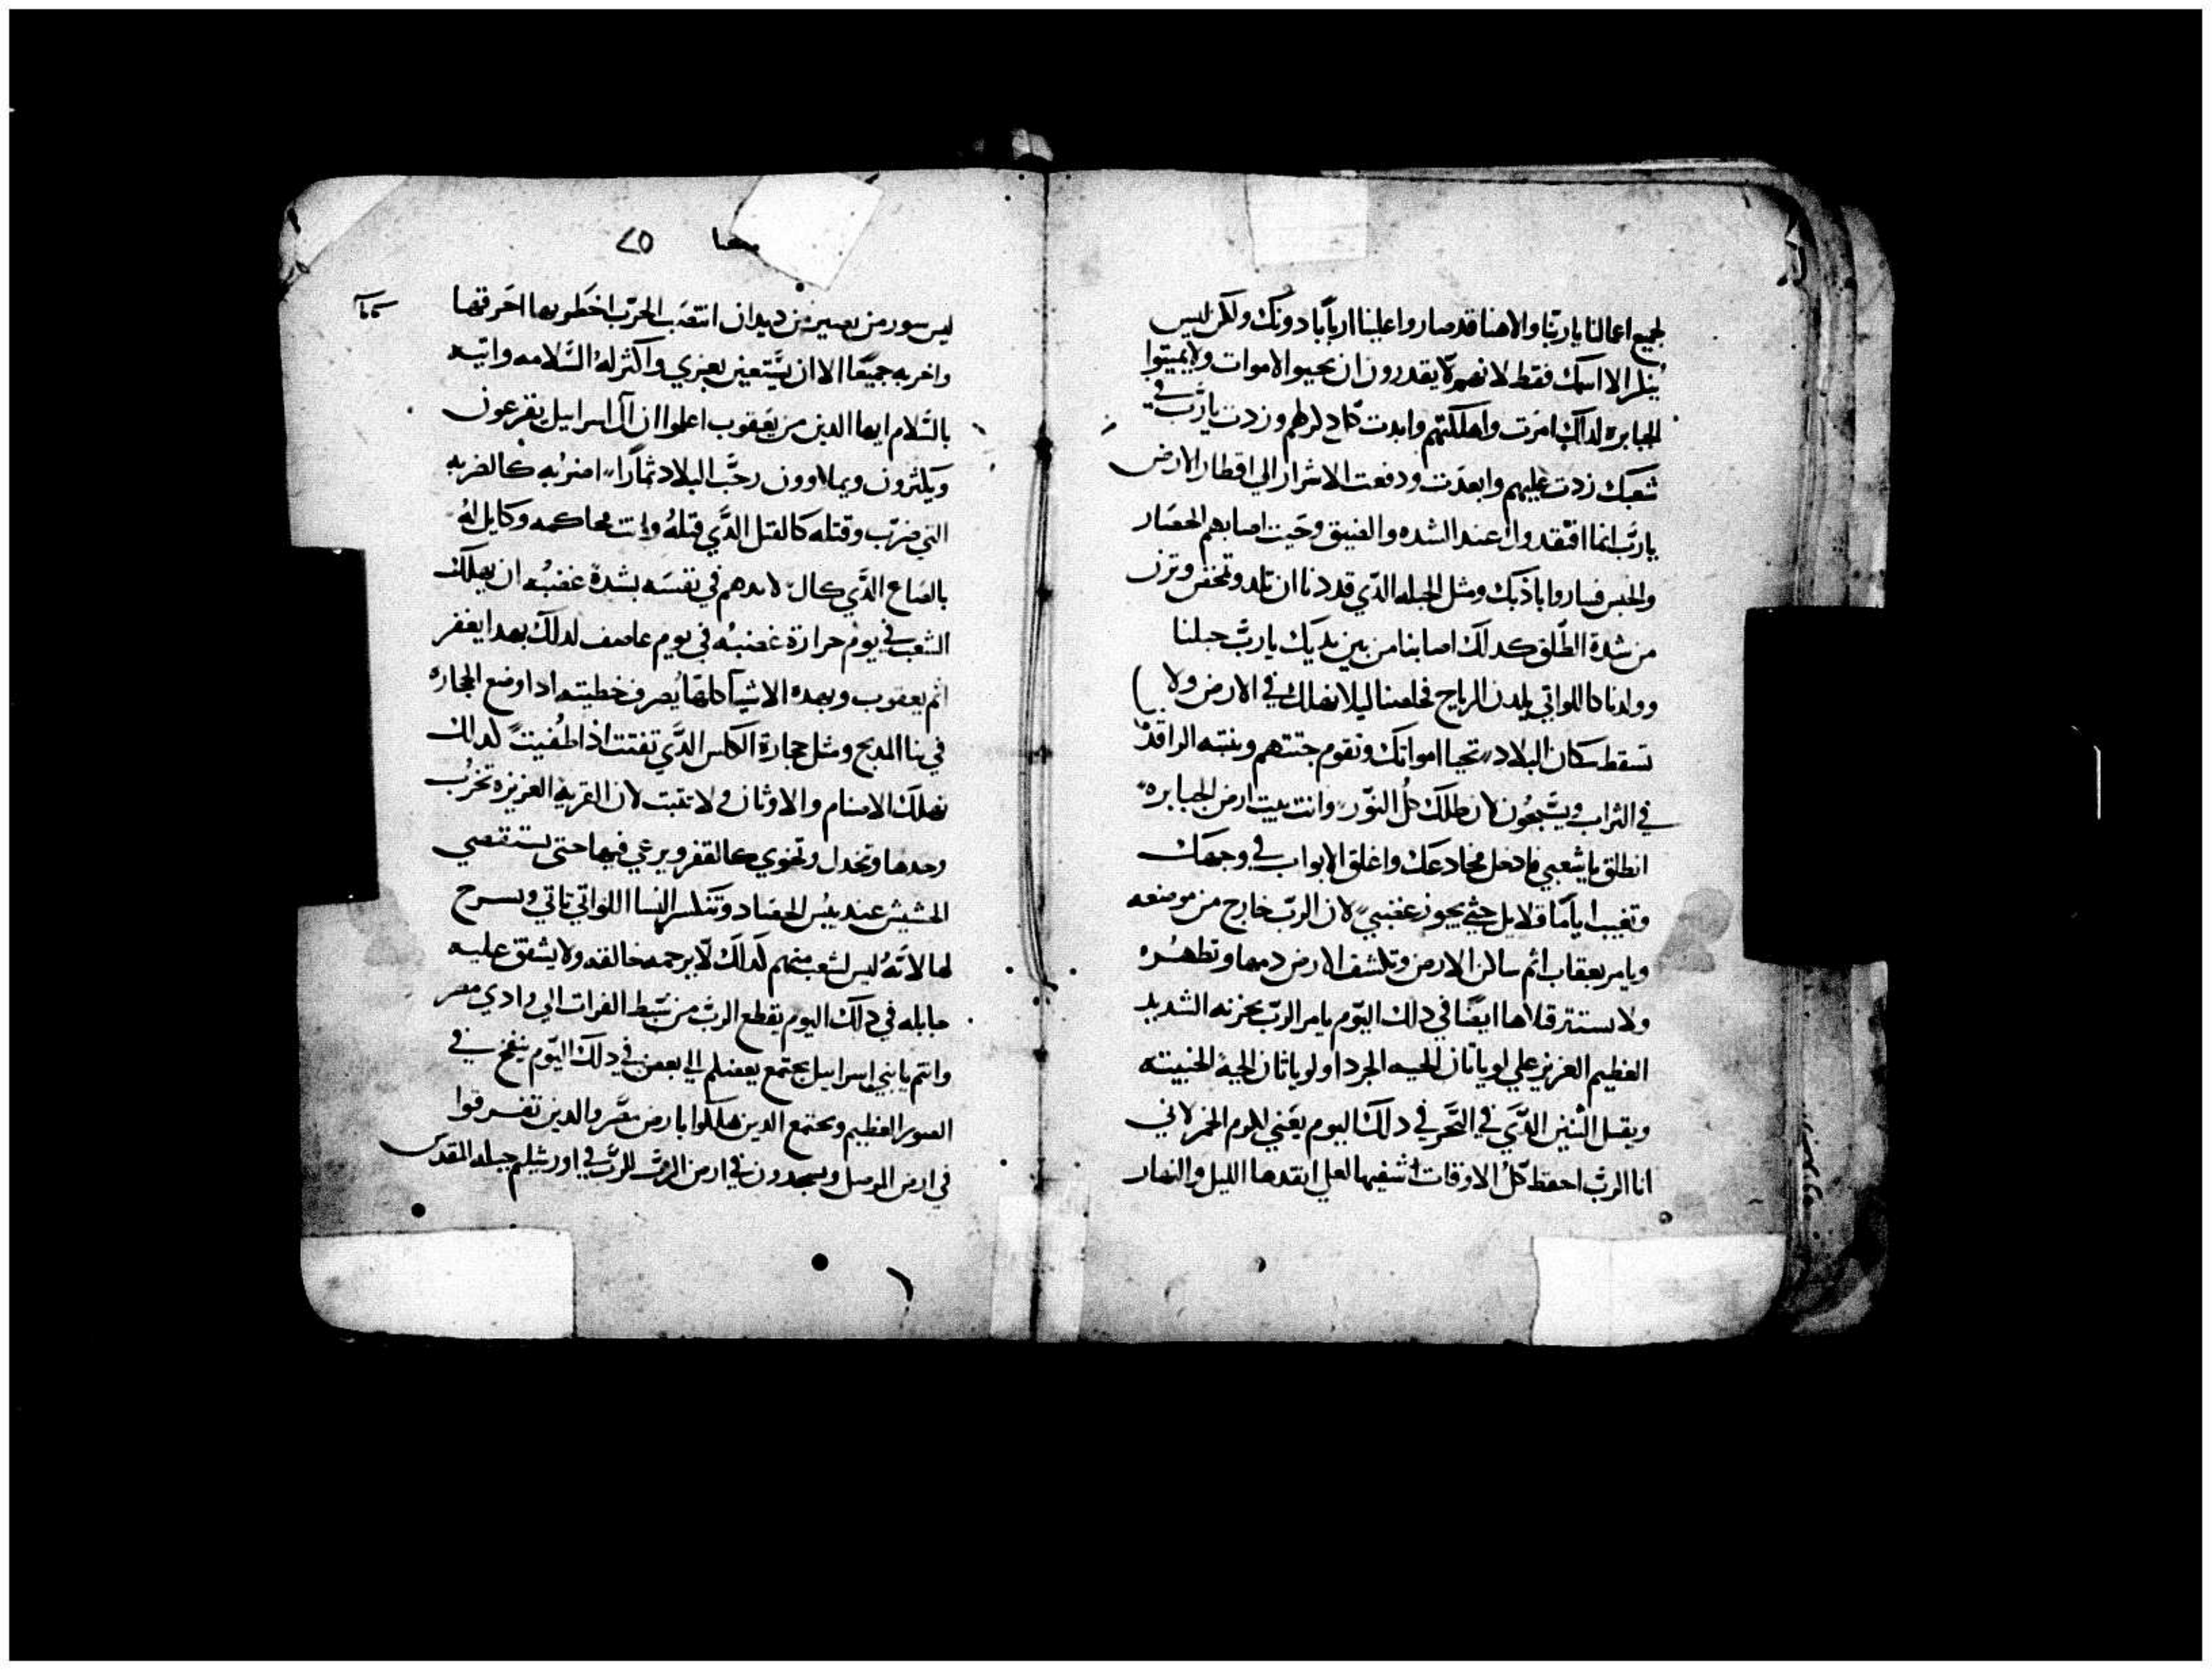 لجميع اعمالنا يا ربنا والاهنا قد صاروا علينا اربابا دونك ولكن ليس
يذكر الا اسمك فقط لانهم لا يقدرون ان يحيوا الاموات ولا يميتوا
الجبابره لدلك امرت واهلكتهم وابدت كل دكرهم وزدت يا رب في
شعبك زدت عليهم وابعدت ودفعت الاشرار الي اقطار الارض
يا رب انما افتقدوك عند الشده والضيق وحيت اصابهم الحصار
والحبس فساروا بادبك ومثل الحبله الدي قد دنا ان تلد وتمخض وتزن
من شدة الطلق كدلك اصابنا من بين يديك يا رب حبلنا
وولدنا كاللواتي يلدن الرياح فخلصنا ليلا نهلك في الارض ولا
تسقط سكان البلاد تحيا امواتك وتقوم جتتهم وينتبه الراقد
في التراب ويسبحون لان طلك طل النور وانت بيت ارض الجبابره
انطلق يا شعبي فادخل مخادعك واغلق الابواب في وجهك
وتغيب اياما قلايل حتي يجوز غضبي لان الرب خارج من موضعه
ويامر بعقاب اثم ساكن الارض وتكشف الارض دمها وتطهره
ولا يستتر قتلاها ايضا في دلك اليوم يامر الرب بحزنه الشديد
العظيم العزيز علي لوياثان الحيه الجردا ولوياثان الحيه الخبيته
ويقتل التنين الدي في البحر في دلك اليوم يغني للوم الخمر لاني
انا الرب احفظ كل الاوقات اشفيها لعلي انقدها الليل والنهار
٧٥
ليس سور من يصيرني من ديدان انتصب الحرب اخطو بها احرقها
واخربه جميعا الا ان يستعين بعزي واكثر له السلامه واتيه
بالسلام ايها الدين من يعقوب اعلموا ان ال اسراييل يفرعون
ويكثرون ويملاوون رحب البلاد ثمارا اضربه كالضربه
التي ضرب وقتله كالقتل الدي قتله وانت محاكمه وكايل له
بالصاع الدي كال لاندهم في نفسه بشدة غضبه ان يهلك
الشعب في يوم حرارة غضبه في يوم عاصف لدلك بهدا يغفر
اثم يعقوب وبهده الاشيا كلها يصرف خطيته ادا وضع الحجاره
في بنا المدبح ومثل حجارة الكلس الدي تفتت ادا طفيت كدلك
تهلك الاصنام والاوثان ولا تتبت لان القريه العزيزه تخرب
وحدها وتخدل وتخوي كالقفر ويرعي فيها حتي يستقصي
الحشيش عند يبس الحصاد وتنكسر النسا اللواتي تاتي وتسرح
لها لانه ليس لشعب منهم لدلك لا يرحمه خالقه ولا يشفق عليه
جابله في دلك اليوم يقطع الرب من شط الفرات الي وادي مصر
وانتم يا بني اسراييل يجتمع بعضكم الي بعض في دلك اليوم ينفخ في
الصور العظيم ويجتمع الدين هلكوا بارض مصر والدين تفرقوا
في ارض الموصل ويسجدون في ارض الرب للرب في اورشليم جبله المقدس